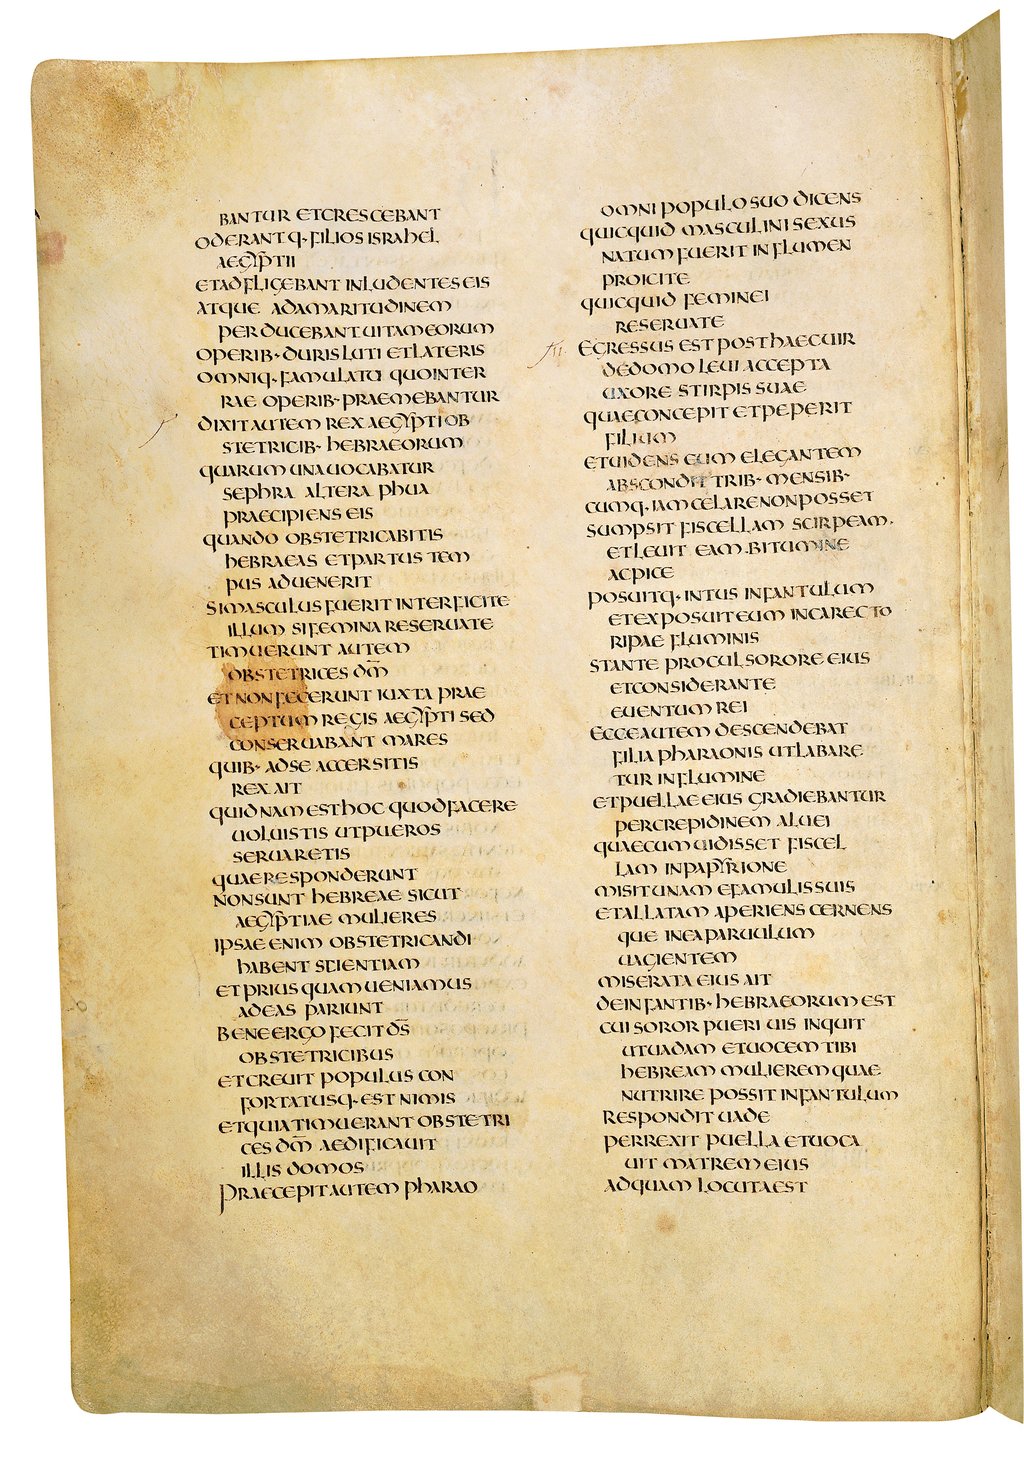 BANTUR ETCRESCEBANT
ODERANTQ· FILIOS ISRAHEL
AEGYPTII
ETADFLIGEBANT INLUDENTES EIS
ATQUE ADAMARITUDINEM
PERDUCEBANT UITAM EORUM
OPERIB· DURIS LUTI ETLATERIS
OMNIQ· FAMULATU QUOINTER
RAE OPERIB· PRAEMEBANTUR
DIXIT AUTEM REX AEGYPTI OB
STETRICIB· HEBRAEORUM
QUARUM UNA UOCABATUR
SEPHRA ALTERA PHUA
PRAECIPIENS EIS
QUANDO OBSTETRICABITIS
HEBRAEAS ETPARTUS TEM
PUS ADUENERIT
SIMASCULUS FUERIT INTERFICITE
ILLUM SIFEMINA RESERUATE
TIMUERUNT AUTEM
OBSTETRICES DM̅
ETNONFECERUNT IUXTA PRAE
CEPTUM REGIS AEGYPTI SED
CONSERUABANT MARES
QUIB· ADSE ACCERSITIS
REX AIT
QUIDNAM ESTHOC QUODFACERE
UOLUISTIS UTPUEROS
SERUARETIS
QUAE RESPONDERUNT
NONSUNT HEBREAE SICUT
AEGYPTIAE MULIERES
IPSAE ENIM OBSTETRICANDI
HABENT SCIENTIAM
ETPRIUSQUAM UENIAMUS
ADEAS PARIUNT
BENE ERGO FECIT DS̅
OBSTETRICIBUS
ETCREUIT POPULUS CON
FORTATUSQ· EST NIMIS
ETQUIA TIMUERANT OBSTETRI
CES DM̅ AEDIFICAUIT
ILLIS DOMOS
PRAECEPIT AUTEM PHARAO
OMNI POPULO SUO DICENS
QUICQUID MASCULINI SEXUS
NATUM FUERIT IN FLUMEN
PROICITE
QUICQUID FEMINEI
RESERUATE
EGRESSUS EST POSTHAEC UIR
DEDOMO LEUI ACCEPTA
UXORE STIRPIS SUAE
QUAECONCEPIT ETPEPERIT
FILIUM
ETUIDENS EUM ELEGANTEM
ABSCONDIT TRIB· MENSIB·
CUMQ· IAM CELARE NONPOSSET
SUMPSIT FISCELLAM SCIRPEAM·
ETLEUIT EAM BITUMINE
ACPICE
POSUITQ· INTUS INFANTULUM
ETEXPOSUIT EUM INCARECTO
RIPAE FLUMINIS
STANTE PROCUL SORORE EIUS
ETCONSIDERANTE
EUENTUM REI
ECCE AUTEM DESCENDEBAT
FILIA PHARAONIS UTLABARE
TUR INFLUMINE
ETPUELLAE EIUS GRADIEBANTUR
PERCREPIDINEM ALUEI
QUAECUM UIDISSET FISCEL
LAM INPAPYRIONE
MISIT UNAM EFAMULIS SUIS
ETALLATAM APERIENS CERNENS
QUE INEA PARUULUM
UAGIENTEM
MISERATA EIUS AIT
DEINFANTIB· HEBRAEORUM EST
CUI SOROR PUERI UIS INQUIT
UTUADAM ETUOCEM TIBI
HEBREAM MULIEREM QUAE
NUTRIRE POSSIT INFANTULUM
RESPONDIT UADE
PERREXIT PUELLA ETUOCA
UIT MATREM EIUS
ADQUAM LOCUTA EST